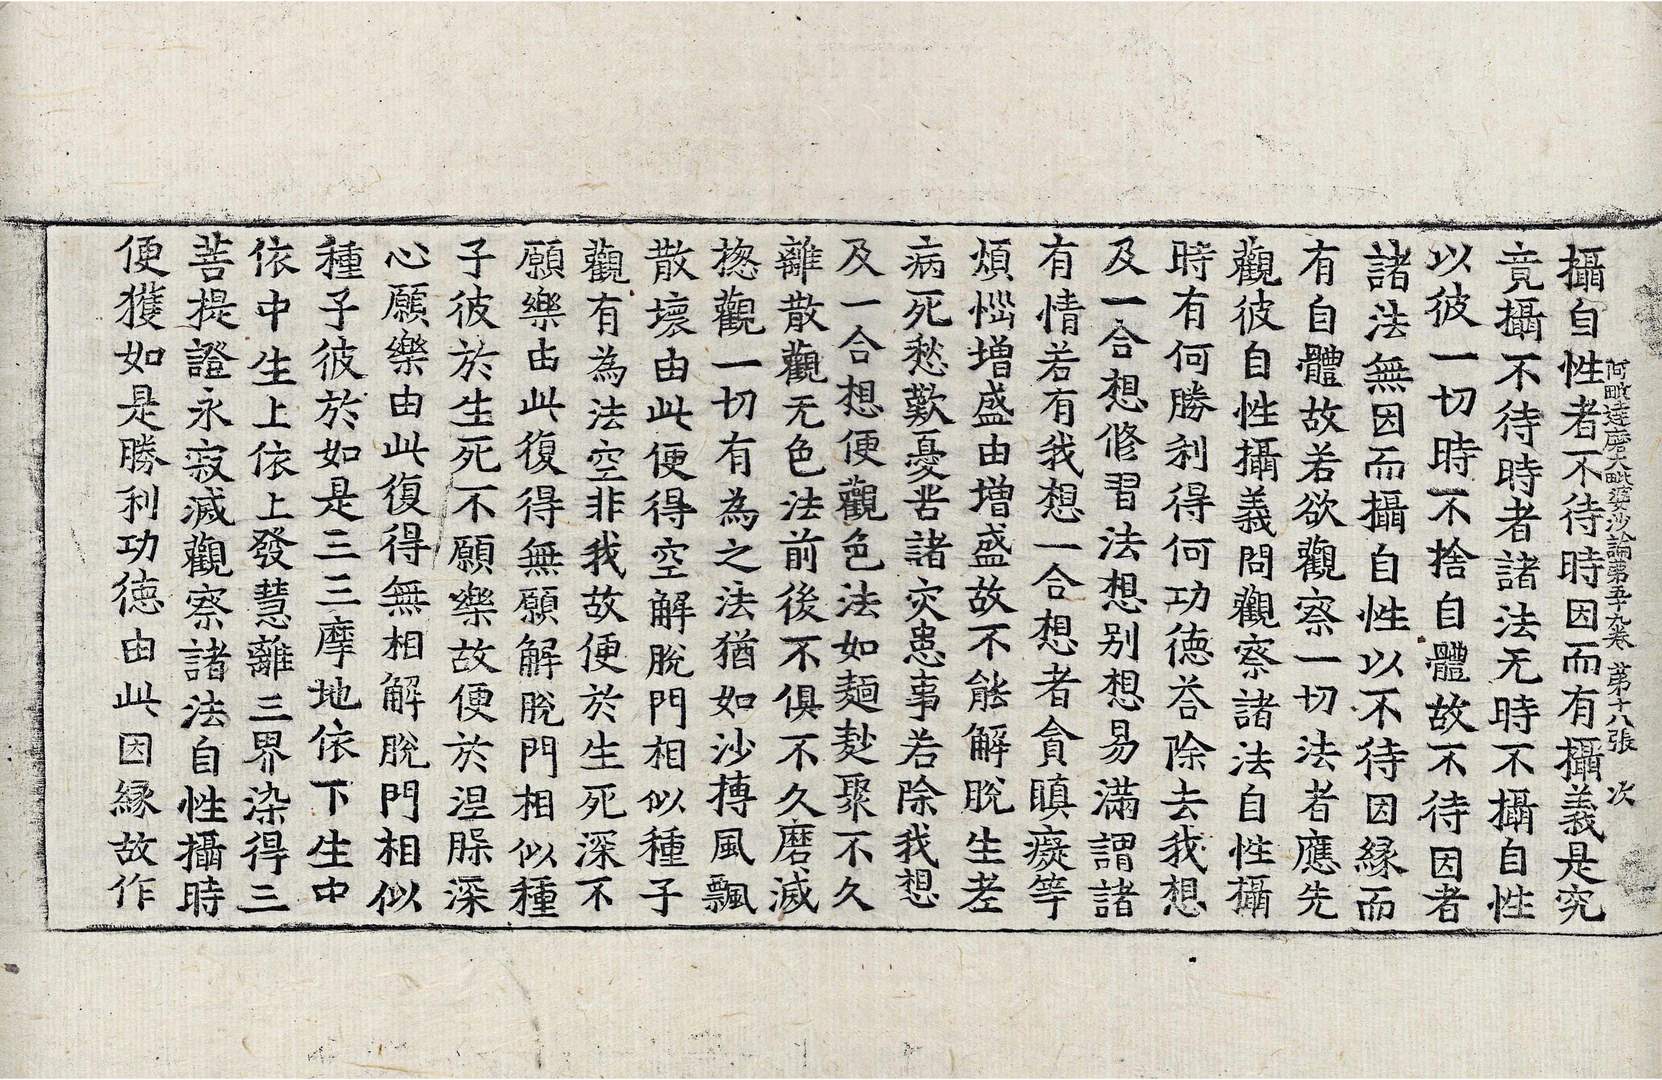 阿毗達磨大毗婆沙論第五十九卷 第十八張 次
攝自性者不待時因而有攝義是究
竟攝不待時者諸法无時不攝自性
以彼一切時不捨自體故不待因者
諸法無因而攝自性以不待因緣而
有自體故若欲觀察一切法者應先
觀彼自性攝義問觀察諸法自性攝
時有何勝利得何功德荅除去我想
及一合想修習法想別想易滿謂諸
有情若有我想一合想者貪瞋癡等
煩惱增盛由增盛故不能解脫生老
病死愁歎憂苦諸灾患事若除我想
及一合想便觀色法如麺麨聚不久
離散觀无色法前後不俱不久磨滅
揔觀一切有為之法猶如沙摶風飄
散壞由此便得空解脫門相似種子
觀有為法空非我故便於生死深不
願樂由此復得無願解脫門相似種
子彼於生死不願樂故便於涅槃深
心願樂由此復得無相解脫門相似
種子彼於如是三三摩地依下生中
依中生上依上發慧離三界染得三
菩提證永寂滅觀察諸法自性攝時
便獲如是勝利功德由此因緣故作